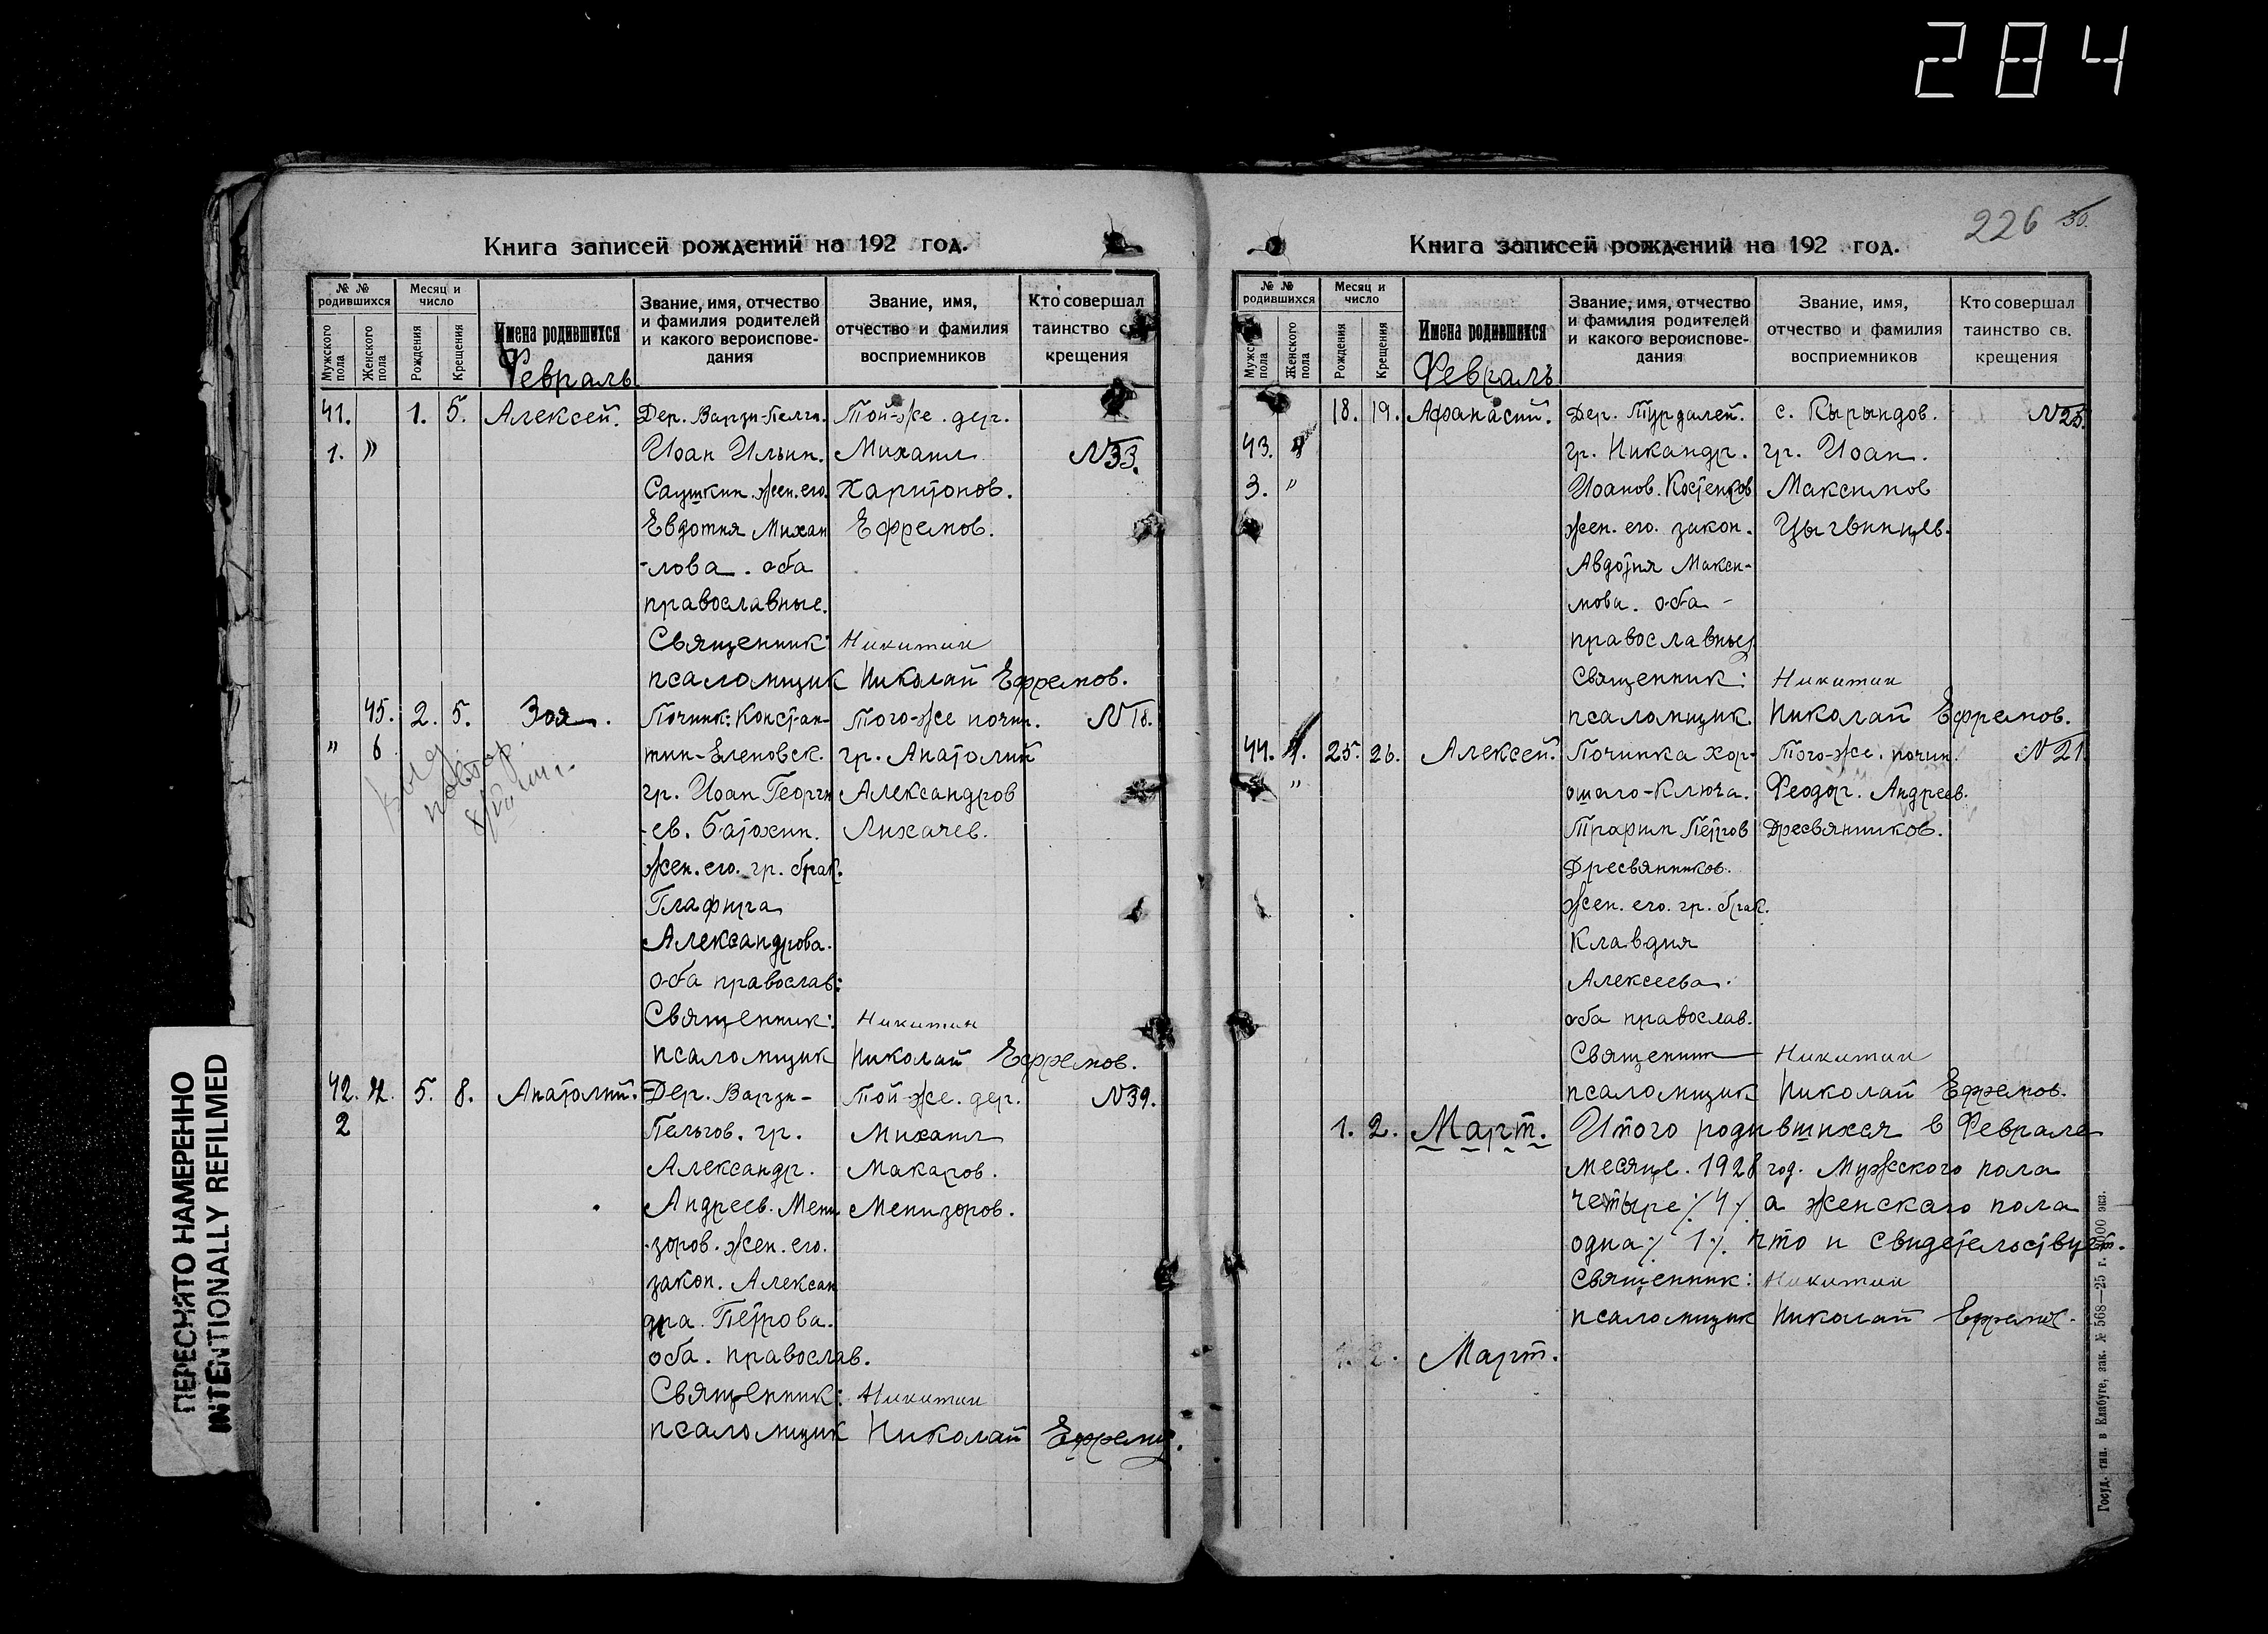 284
226 30.
Книга записей рождений на 192 год.
№ № родившихся
Месяц и число
Мужского пола
Женского пола
Рождения
Крещения
Имена родившихся
Звание, имя, отчество и фамилия родителей и какого вероисповедания
Звание, имя, отчество и фамилия восприемников
Кто совершал таинство св. крещения
Февраль
41. 1. 5. Алексей. Дер. Варзи-Пелги. Той-же. дер.
1. " Иоан Ильин. Михаил N 33.
Саушкин. жен. его. Харитонов.
Евдотия Михаи Ефремов.
-лова. оба
православные.
Священник: Никитин
псаломщик Николай Ефремов.
45. 2. 5. Зоя. Починк: Констан- Того-же почин. N 18.
" 6 тин-Еленовск. гр. Анатолий
гр. Иоан Георги Александров
-ев. Батохин. Лихачев.
жен. его. гр. брак.
Глафира
Александрова.
оба православ:
Священник: Никитин
псаломщик Николай Ефремов.
42. 5. 8. Анатолий. Дер. Варзи- Той-же. дер. N 39.
2 Пельгов. гр. Михаил
Александр. Макаров.
Андреев. Мени Менизоров.
-зоров. жен. его.
закон. Алексан
дра. Петрова.
оба. православ.
Священник: Никитин
псаломщик Николай Ефремов.
Книга записей рождений на 192 год.
№ № родившихся
Месяц и число
Мужск пола
Женского пола
Рождения
Крещения
Имена родившихся
Звание, имя, отчество и фамилия родителей и какого вероисповедания
Звание, имя, отчество и фамилия восприемников
Кто совершал таинство св. крещения
Февраль
18. 19. Афанасий. Дер. Турдалей. с. Кырындов. N 25.
43. гр. Никандр. гр. Иоан.
3. " Иоанов. Костенков Максимов
жен. его. закон. Цыгвинцев.
Авдотия Макси-
мова. оба -
православные
Священник: Никитин
псаломщик Николай Ефремов.
44. 4. 25. 26. Алексей. Починка Хор- Того-же. почин. N 21
" ошаго-Ключа. Феодор. Андреев.
Трафим Петров Дресвянников.
Дресвянников.
жен. его. гр. брак.
Клавдия
Алексеева.
оба православ.
Священник Никитин
псаломщик Николай Ефремов.
1. 2. Март. Итого родившихся в Феврале
месяце. 1928 год. Мужского пола
четыре ٪ 4 ٪ а женскаго пола
одна ٪ 1 ٪. что и свидетельствует.
Священник: Никитин
псаломщик Николай Ефремов.
1. 2. Март.
ПЕРЕСНЯТО НАМЕРЕННО
INTENTIONALLY REFILMED